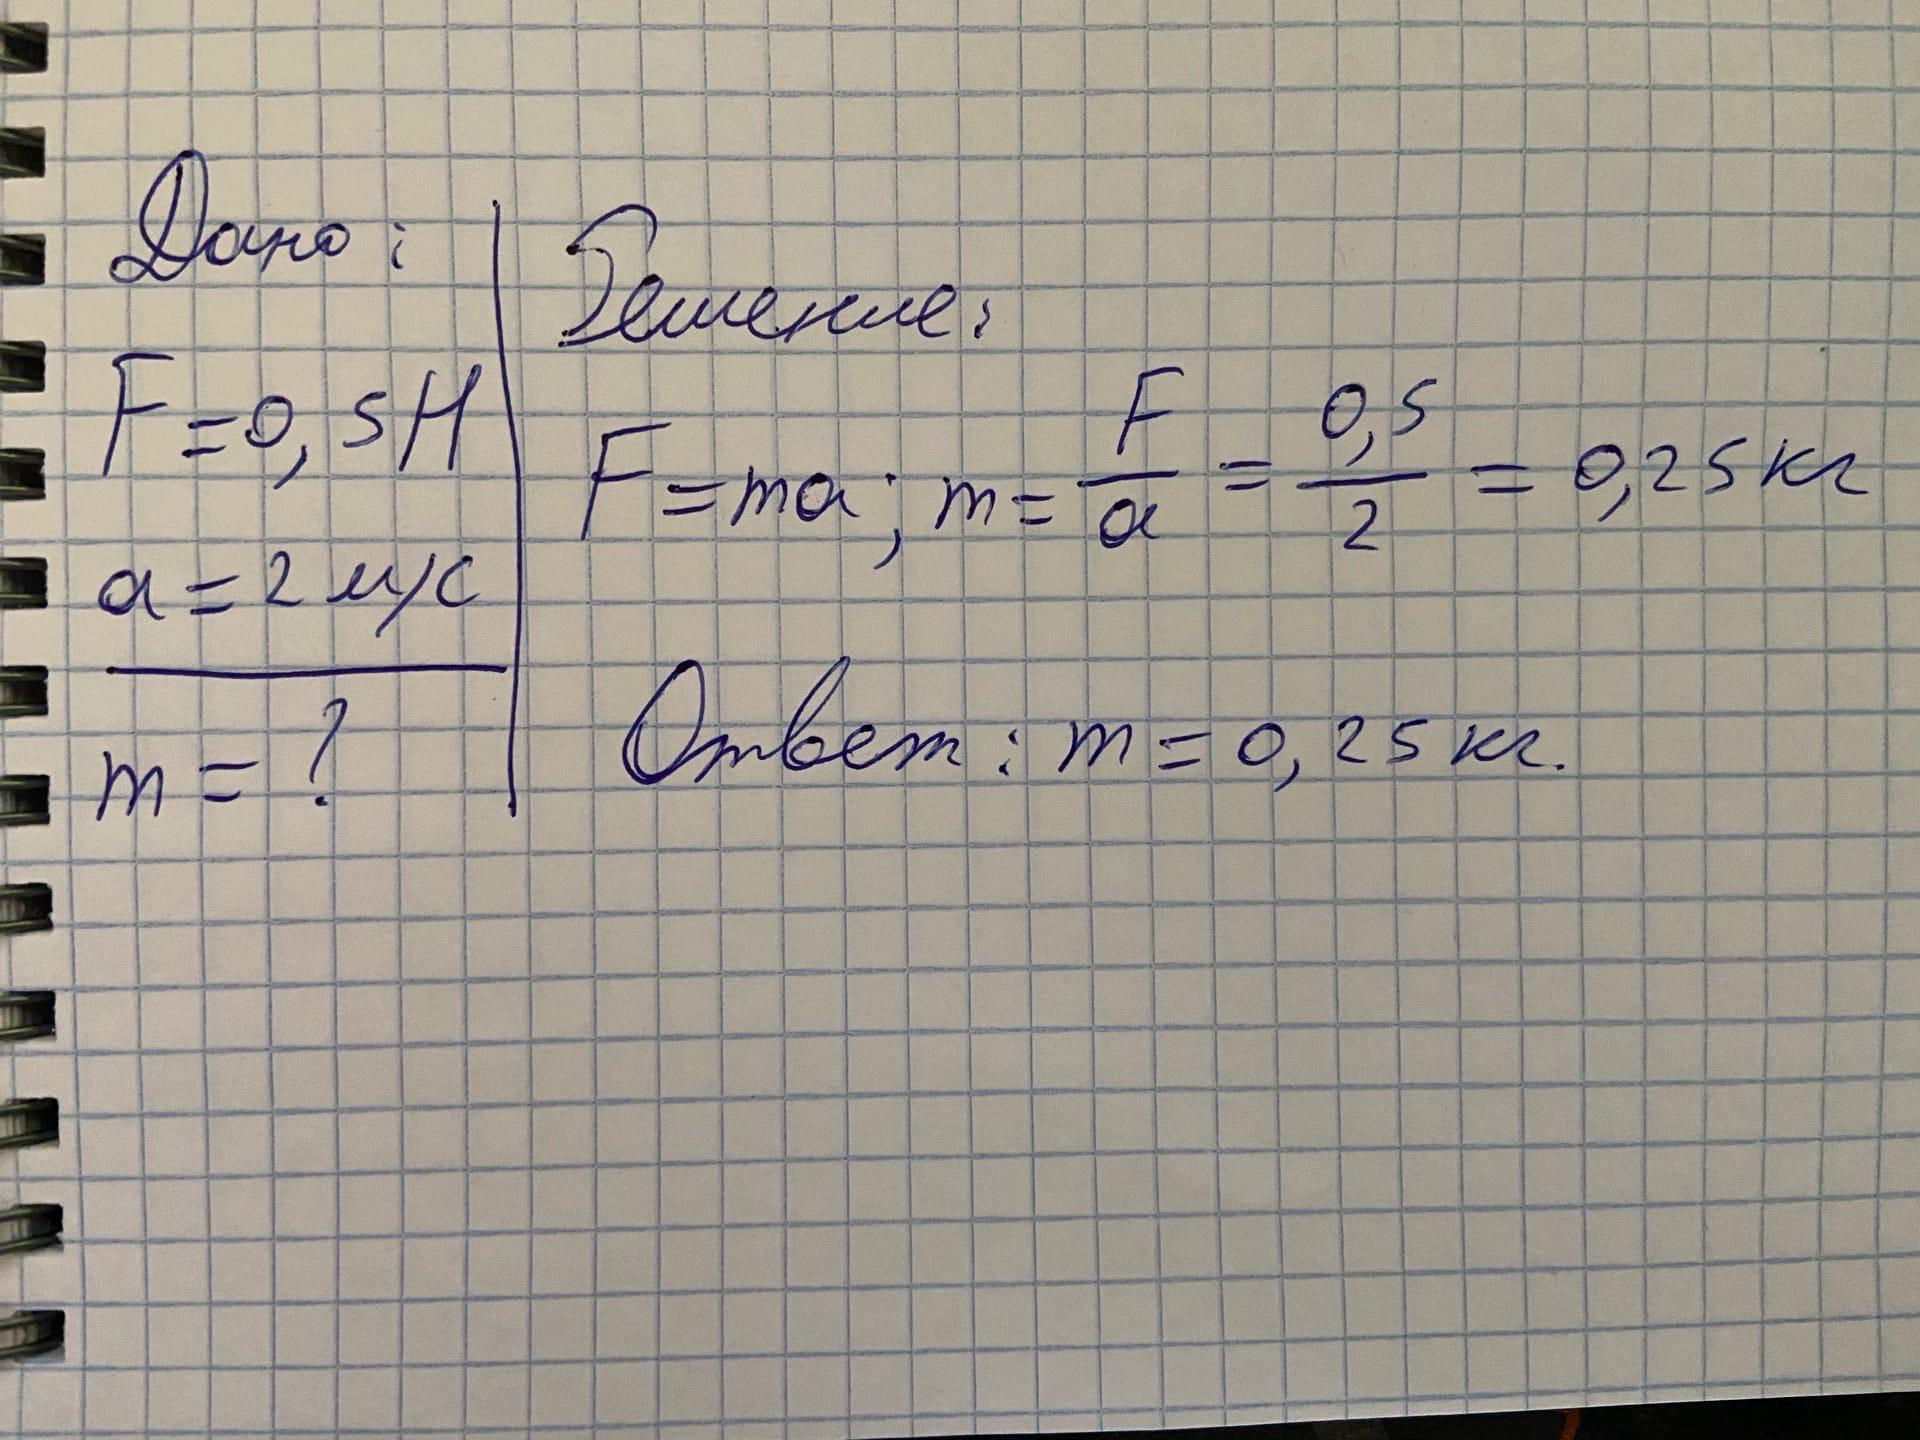 Дано:
F=0,5Н
a=2 м/с
m=?
Решение:
F=ma; m=F/a=0,5/2=0,25кг
Ответ: m=0,25кг.